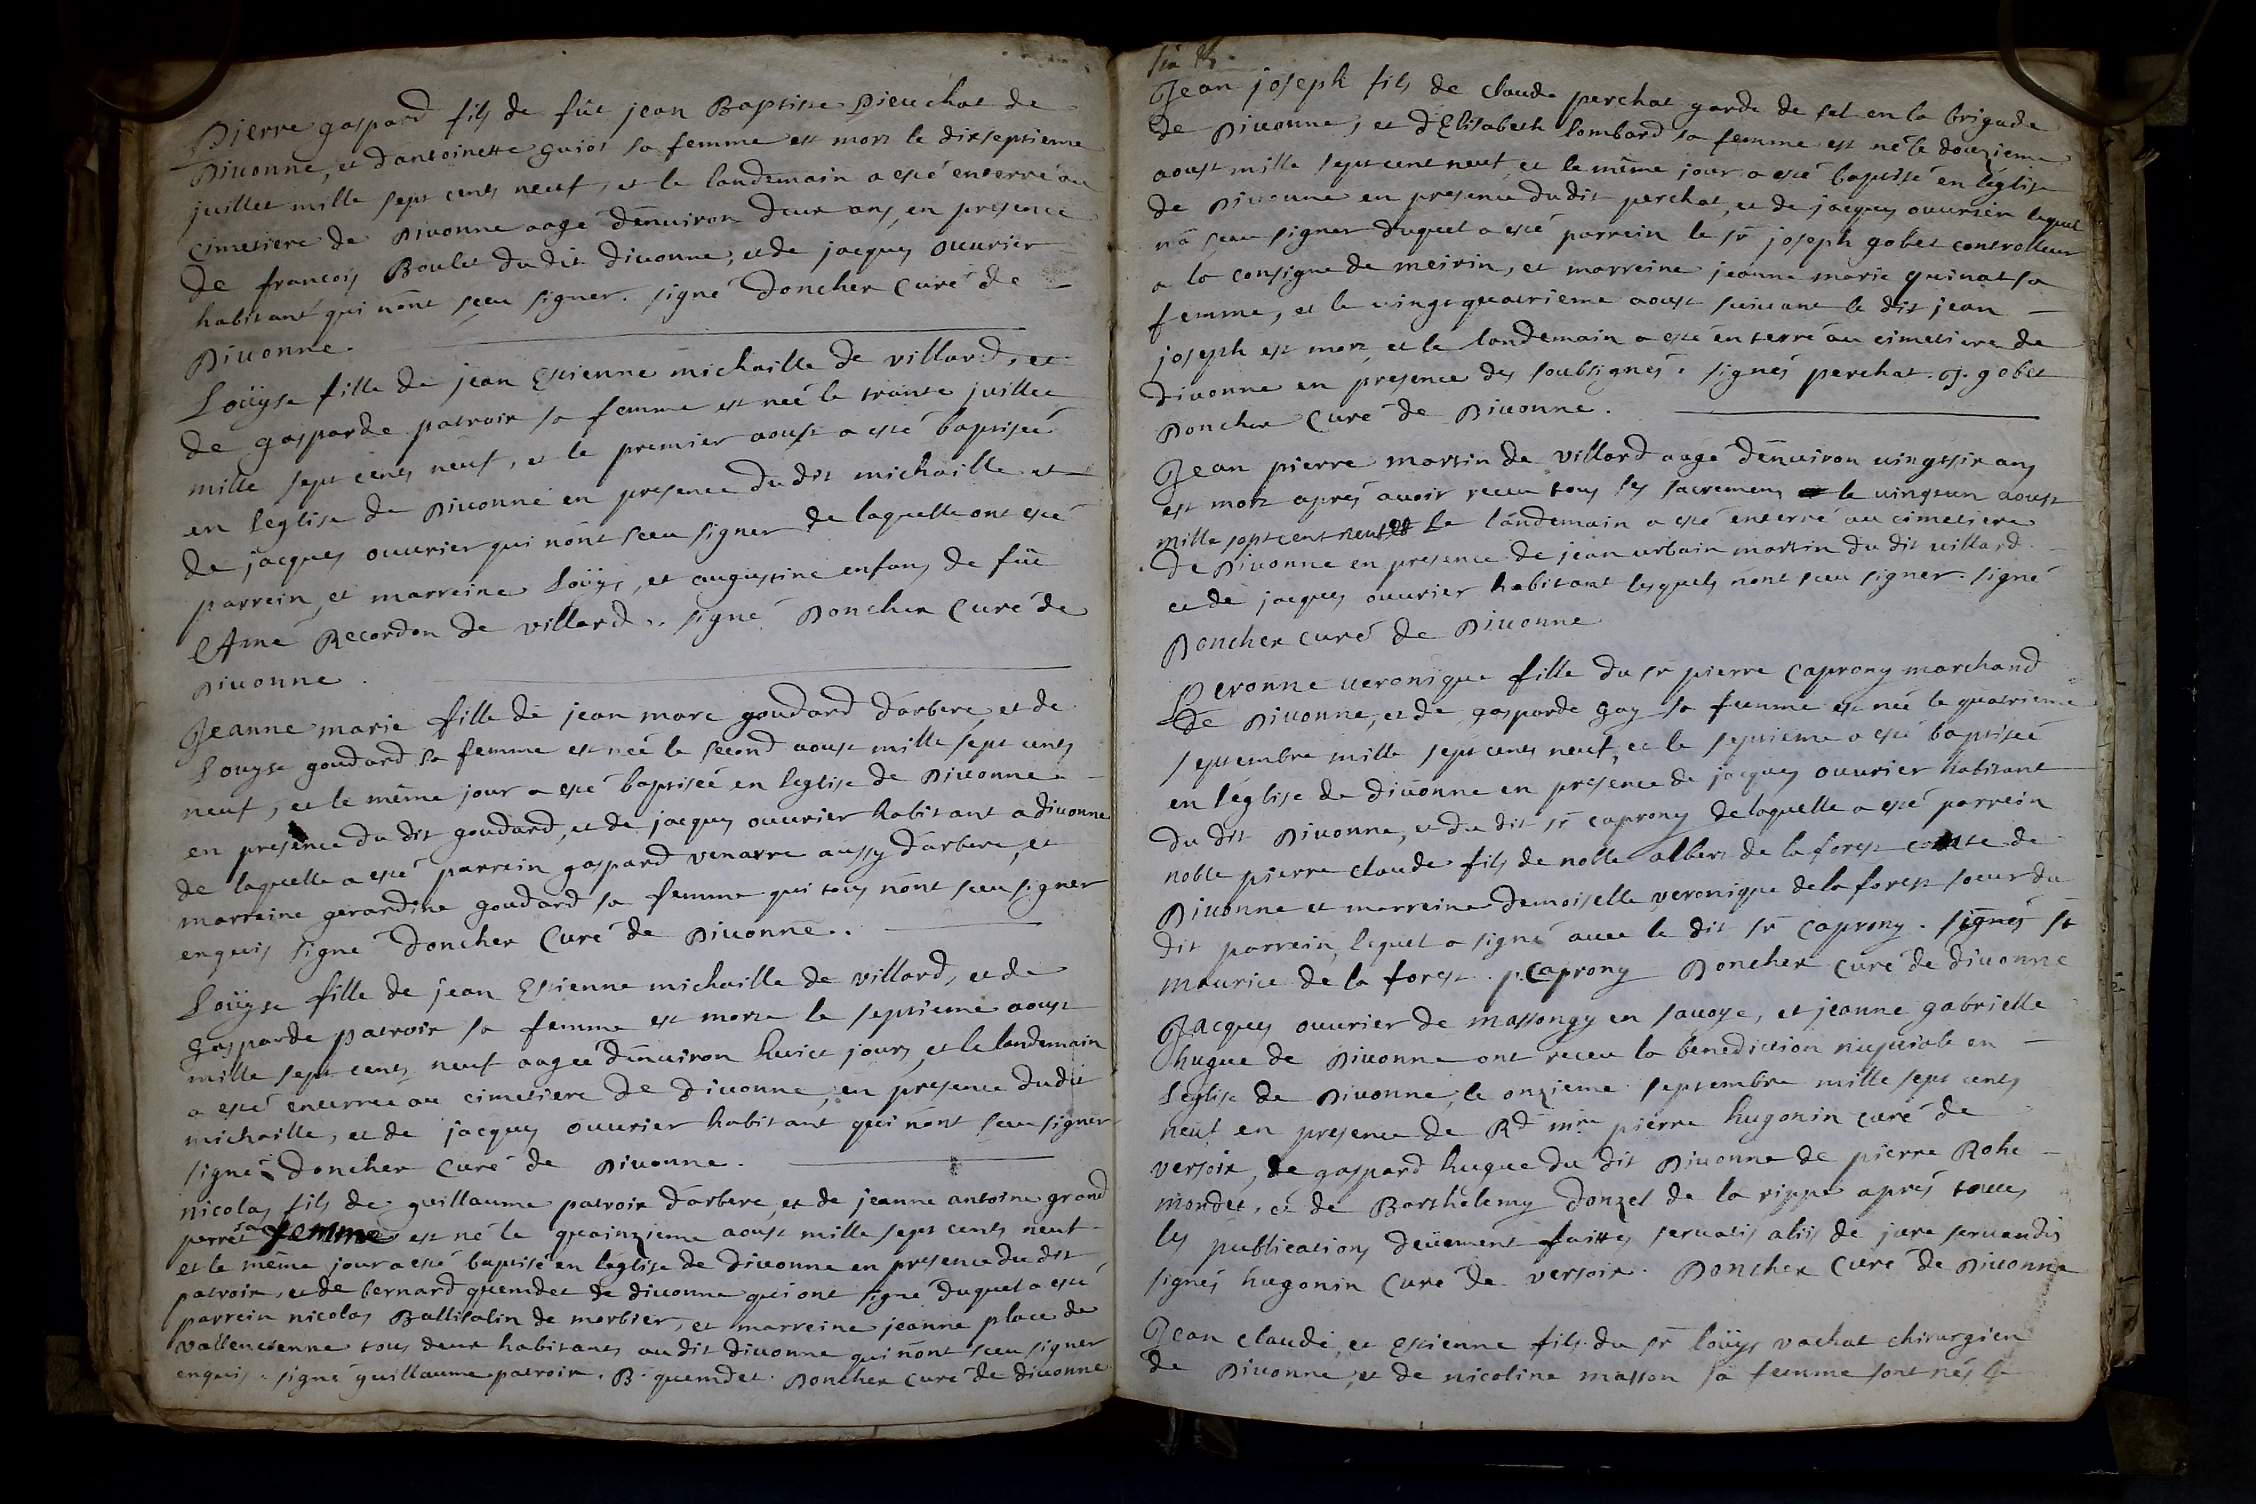 Pierre gaspard fils de fût jean Baptiste Dieuchat de
Diuonne, et d'antoinette guiot sa femme est mort le dixseptieme
juillet mille sept cents neuf, et le landemain a esté enterré au
cimetiere de Diuonne aagé d'enuiron deux ans, en presence
de francois Boulet du dit diuonne, et de jacques ouurier
habitant qui n'ont sceu signer. signé Doncher Curé de
Diuonne.
Loüyse fille de jean Estienne michaille de villard, et
de gasparde patroix sa femme est neé le trante juillet
mille sept cents neuf, et le premier aoust a esté baptiseé
en l'eglise de Diuonne en presence du dit michaille et
de jacques ouurier qui n'ont sceu signer de laquelle ont esté
parrein, et marreine Loüys, et augustine enfans de fût
Amé Recordon de villard. signé Doncher Curé de
Diuonne.
Jeanne marie fille de jean marc goudard d'arbere, et de
Louyse goudard sa femme est neé le second aoust mille sept cents
neuf, et le même jour a esté baptiseé en l'eglise de Diuonne
en presence du dit goudard, et de jacques ouurier habitant a diuonne
de laquelle a esté parrein gaspard venarre aussy d'arbere, et
marraine gerardine goudard sa femme qui tous n'ont sceu signer
enquis signé Doncher Curé de Diuonne..
Loüyse fille de jean Estienne michaille de villard, et de
gasparde patroix sa femme est morte le septieme aoust
mille sept cents neuf aageé d'enuiron huict jours, et le landemain
a esté enterreé au cimetiere de Diuonne, en presence du dit
michaille, et de jacques ouurier habitant qui n'ont sceu signer
signé Doncher Curé de Diuonne.
nicolas fils de guillaume patroix d'arbere, et de jeanne antoine grand
perret sa femme est né le quainzieme aoust mille sept cents neuf
et le même jour a esté baptisé en l'eglise de diuonne en presence du dit
patroix, et de bernard quemdet de diuonne qui ont signé duquel a esté
parrein nicolas Ballisalin de morbier, et marreine jeanne place de
vallencienne tous deux habitants au dit diuonne qui n'ont sceu signer
enquis. signé guillaume patroix. B. quemdet. Doncher Curé de diuonne
Jean joseph fils de claude perchat garde de sel en la brigade
de Diuonne, et d'Elisabeth lombard sa femme est né le douzieme
aoust mille sept cent neuf, et le même jour a esté baptisé en l'eglise
de Diuonne en presence du dit perchat, et de jacques ouurier lequel
n'a sceu signer duquel a esté parrein le sr joseph gobet controlleur
a la consigne de meirin, et marreine jeanne marie quinat sa
femme, et le vingtquatrieme aoust suiuant le dit jean
joseph est mort, et le landemain a esté enterré au cimetiere de
diuonne en presence des soubsignés. signés perchat. J. gobet
Doncher Curé de Diuonne.
Jean pierre martin de villard aagé d'enuiron vingtsix ans
est mort aprés auoir receu tous les sacremens le vingtun aoust
mille sept cent neuf et le landemain a esté enterré au cimetiere
de Diuonne en presence de jean urbain martin du dit villard
et de jacques ouurier habitant lesquels n'ont sceu signer. signé
Doncher curé de Diuonne
Peronne ueronique fille du sr pierre Caprony marchand
de Diuonne, et de gasparde gay sa femme est neé le quatrieme
septembre mille sept cents neuf, et le septieme a esté baptiseé
en l'eglise de diuonne en presence de jacques ouurier habitant
du dit Diuonne, et du dit sr caprony de laquelle a esté parrein
noble pierre claude fils de noble albert de la forest comte de
Diuonne et marreine demoiselle veronique de la forest soeur du
dit parrein, lequel a signé auec le dit sr Caprony. signés st
maurice de la forest. p. Caprony Doncher Curé de diuonne
Jacques ouurier de massongy en sauoye, et jeanne gabrielle
hugue de Diuonne ont receu la benediction nuptiale en
l'eglise de Diuonne, le onzieme septembre mille sept cents
neuf en presence de Rd mre pierre hugonin curé de
versoix, de gaspard hugue du dit Diuonne de pierre Rohe
mondet, et de Barthelemy Donzel de la rippe aprés toutes
les publications deüement faittes seruatis aliis de jure seruandis
signés hugonin Curé de versoix. Doncher Curé de Diuonne
Jean claude, et Estienne fils du sr loüys vachat chirurgien
de Diuonne, et de nicoline masson sa femme sont nés le